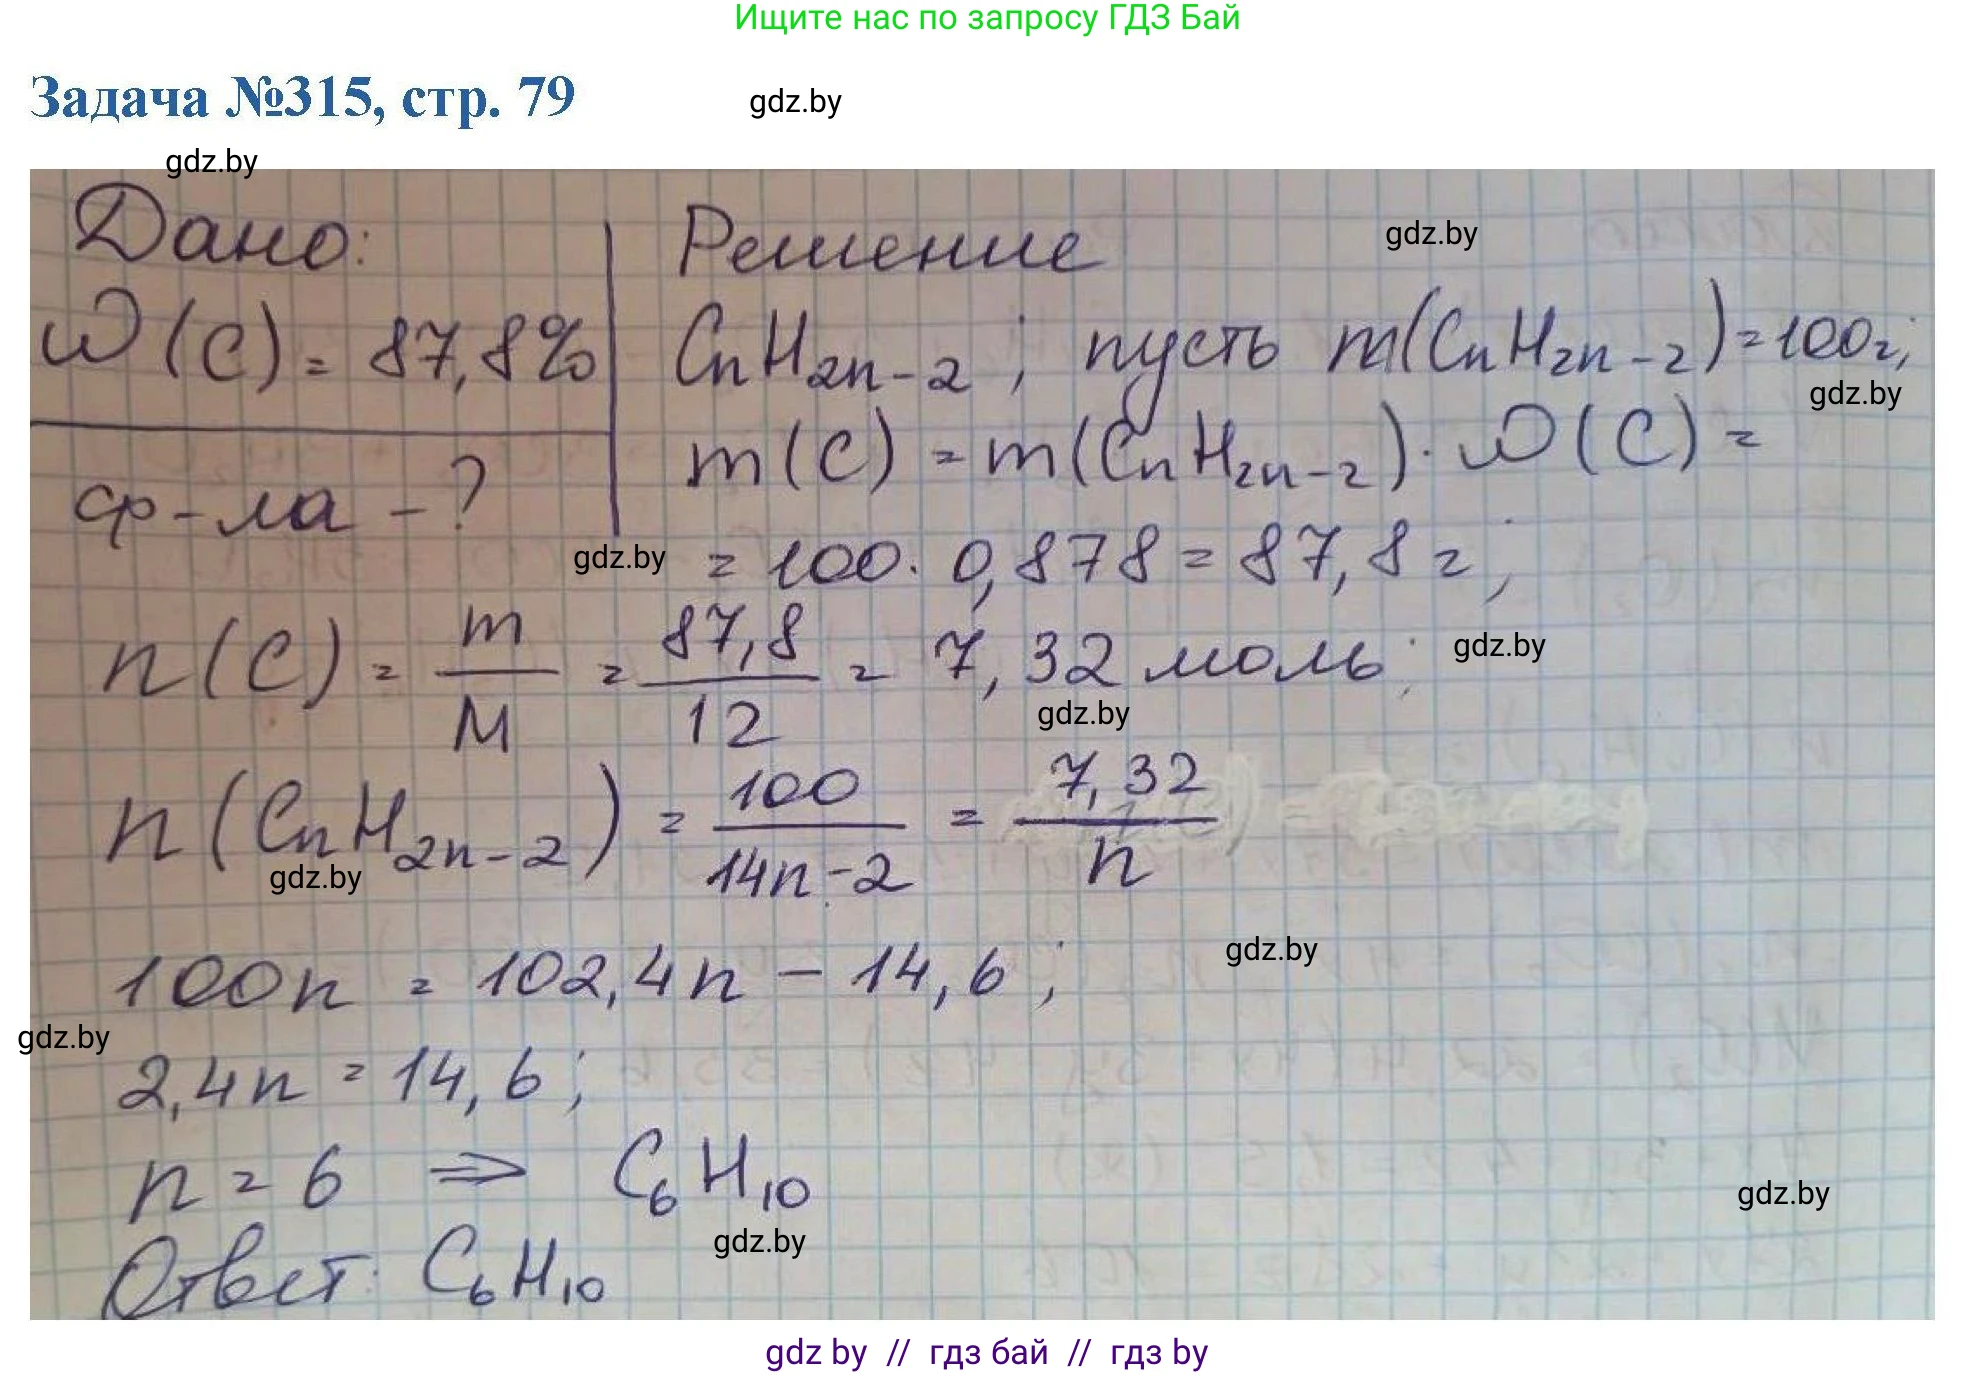 Ищите нас по запросу ГДЗ Бай
Задача №315, стр. 79
gdz.by
gdz.by
Дано:
Решение
gdz.by
ω(C) = 87,8%
CnH2n-2; пусть m(CnH2n-2) = 100г;
gdz.by
m(C) = m(CnH2n-2) · ω(C) =
ф-ла - ?
gdz.by
= 100 · 0,878 = 87,8 г;
n(C) = m/M = 87,8/12 = 7,32 моль;
gdz.by
gdz.by
n(CnH2n-2) = 100/14n-2 = 7,32/n
gdz.by
gdz.by
100n = 102,4n - 14,6;
gdz.by
2,4n = 14,6;
n = 6 ⇒ C6H10
gdz.by
gdz.by
Ответ: C6H10
gdz by // гдз бай // гдз by